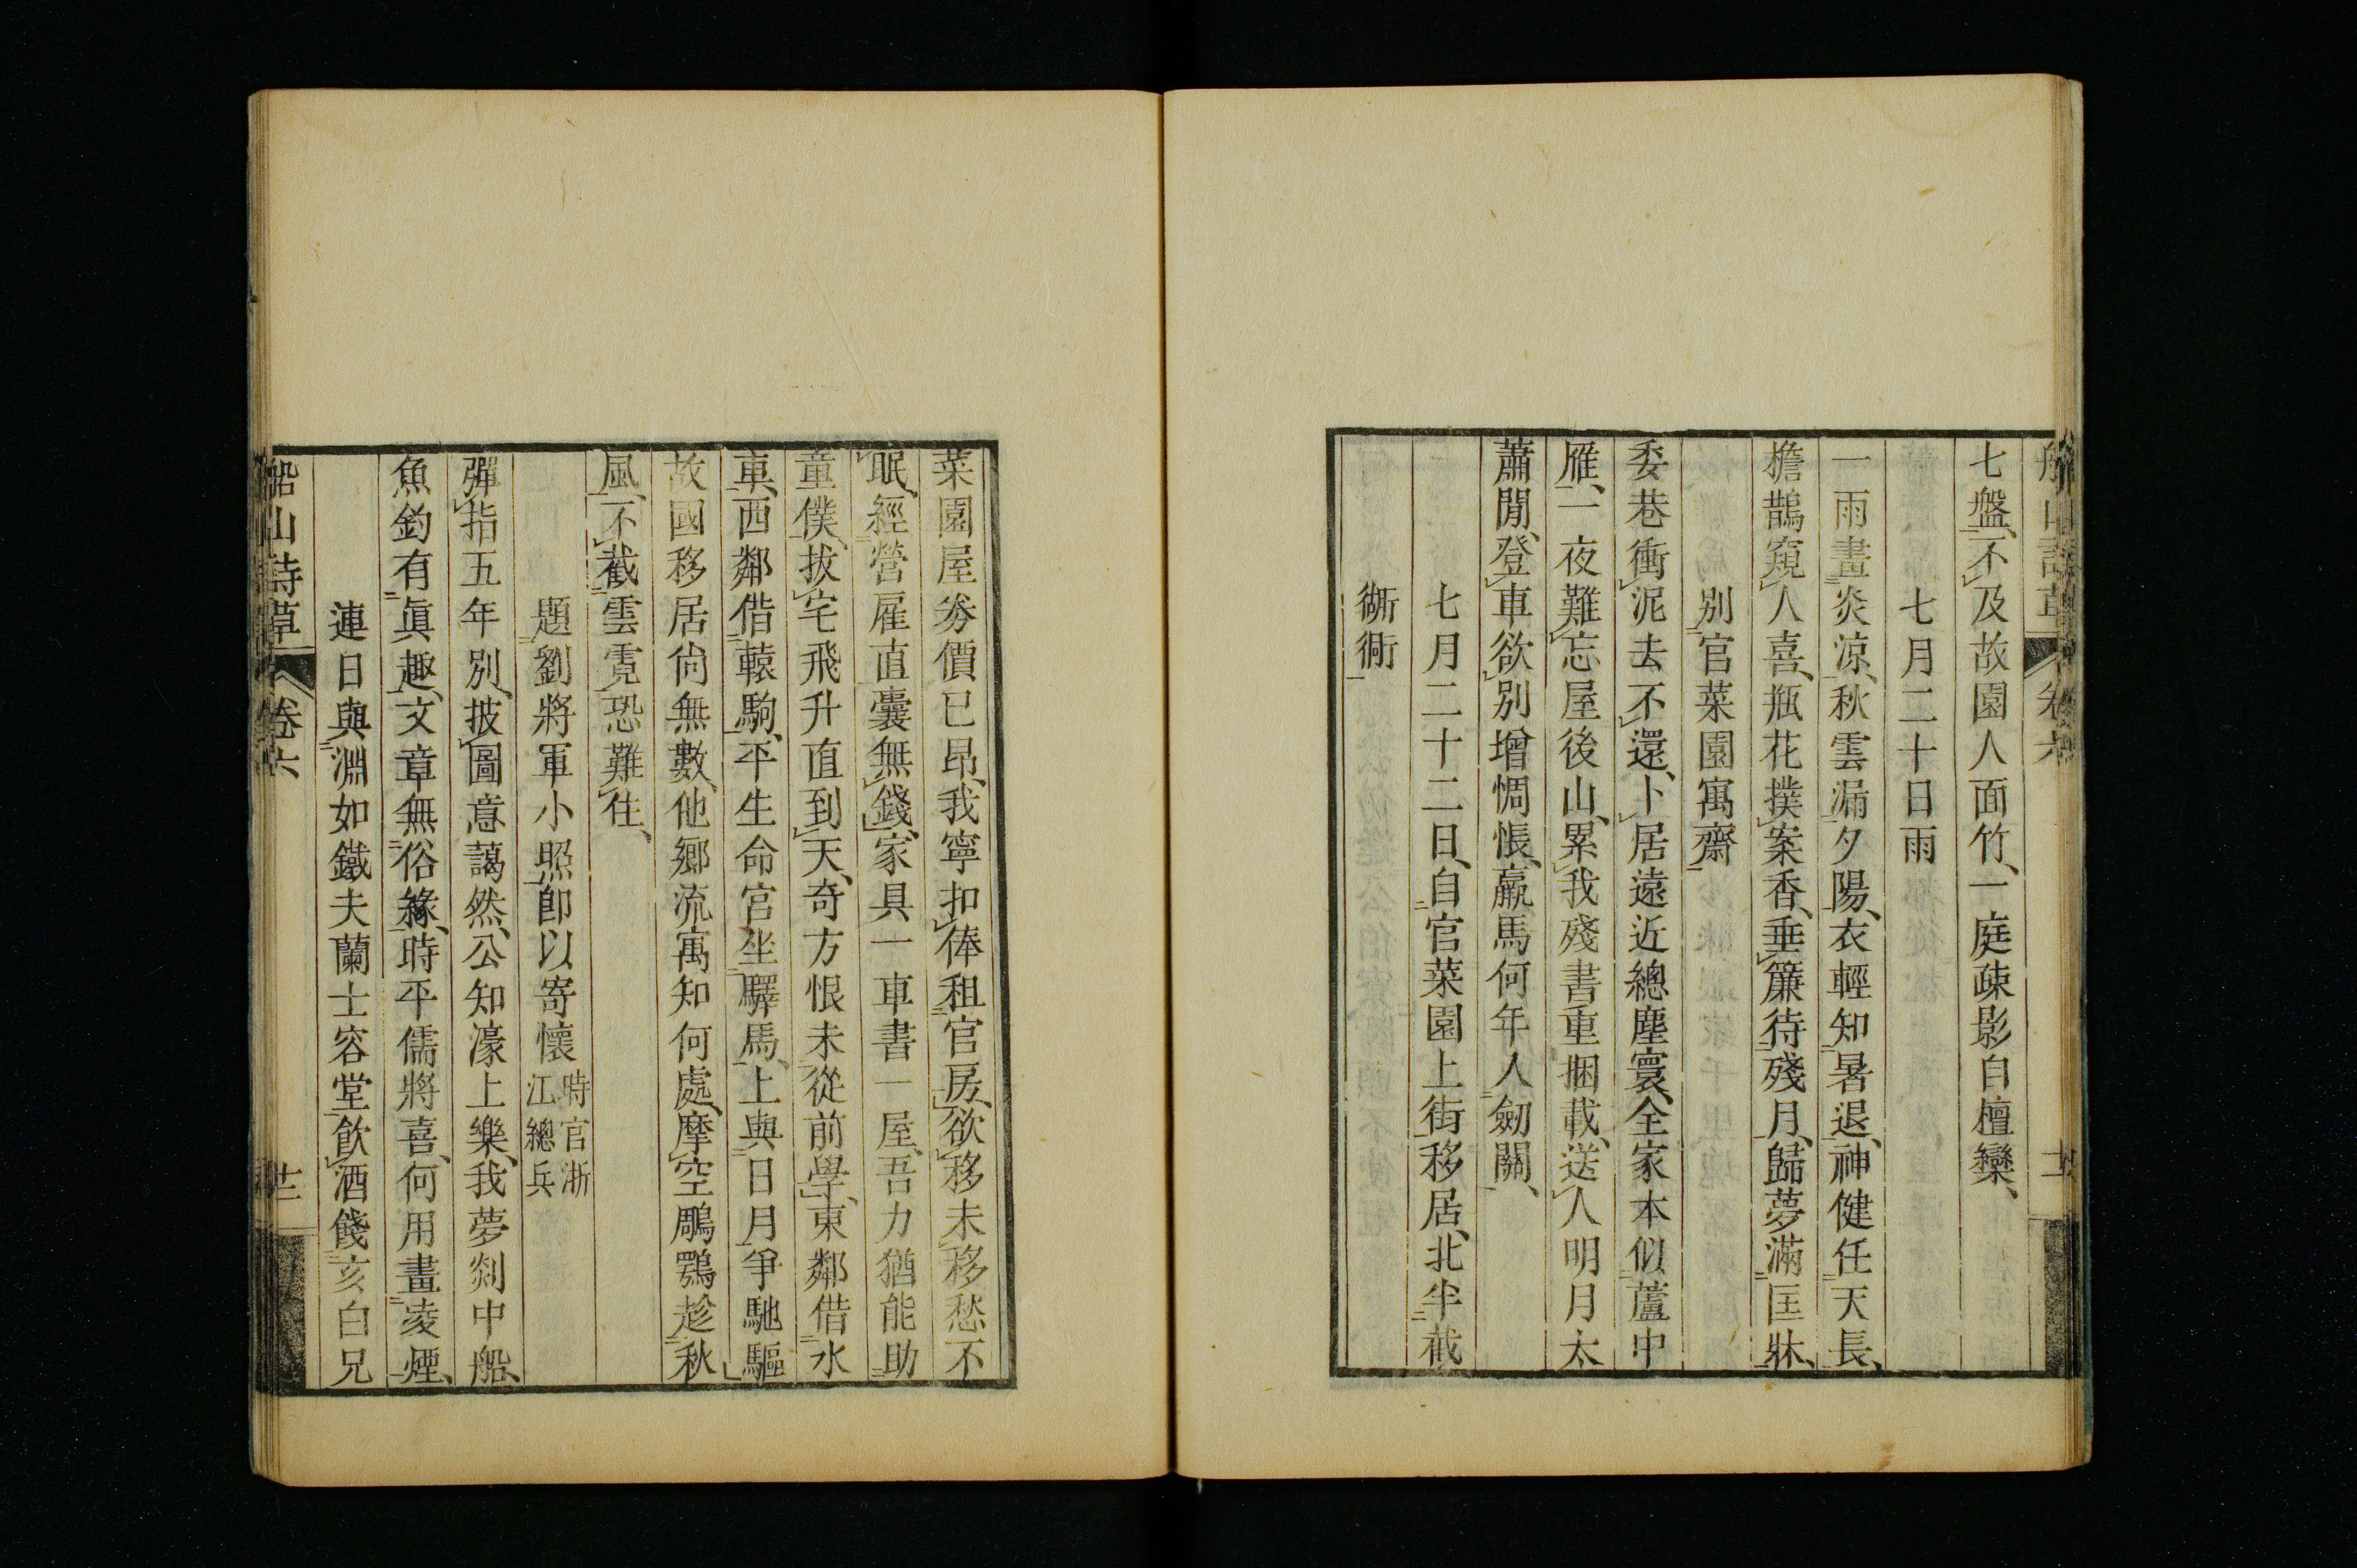 船山詩草 卷六 十一
七盤、不及故園人面竹、一庭疎影自檀欒、
七月二十日雨
一雨晝炎涼、秋雲漏夕陽、衣輕知暑退、神健任天長、
檐鵲窺人喜、瓶花撲案香、垂簾待殘月、歸夢滿匡牀、
別官菜園寓齋
委巷衝泥去不還、卜居遠近總塵寰、全家本似蘆中
雁、一夜難忘屋後山、累我殘書重捆載、送人明月太
蕭閒、登車欲別增惆悵、羸馬何年入劒關、
七月二十二日、自官菜園上街移居、北半截
衚衕
菜園屋劵價已昂、我寧扣俸租官房、欲移未移愁不
眠、經營雇直囊無錢、家具一車書一屋、吾力猶能助
童僕、拔宅飛升直到天、奇方恨未從前學、東鄰借水
車、西鄰借轅駒、平生命宮坐驛馬、上與日月爭馳驅
故國移居尙無數、他鄉流寓知何處、摩空鵰鶚趁秋
風、不截雲霓恐難住、
題劉將軍小照卽以寄懷 時官浙江總兵
彈指五年別、披圖意藹然、公知濠上樂、我夢剡中船、
魚釣有眞趣、文章無俗緣、時平儒將喜、何用畫凌煙、
連日與淵如鐵夫蘭士容堂飮酒餞亥白兄
船山詩草 卷六 十二